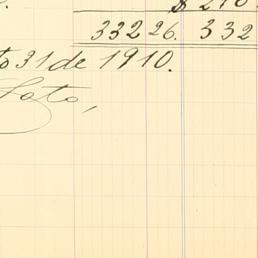 $ 210
332 26. 332
to 31 de 1910.
Soto,